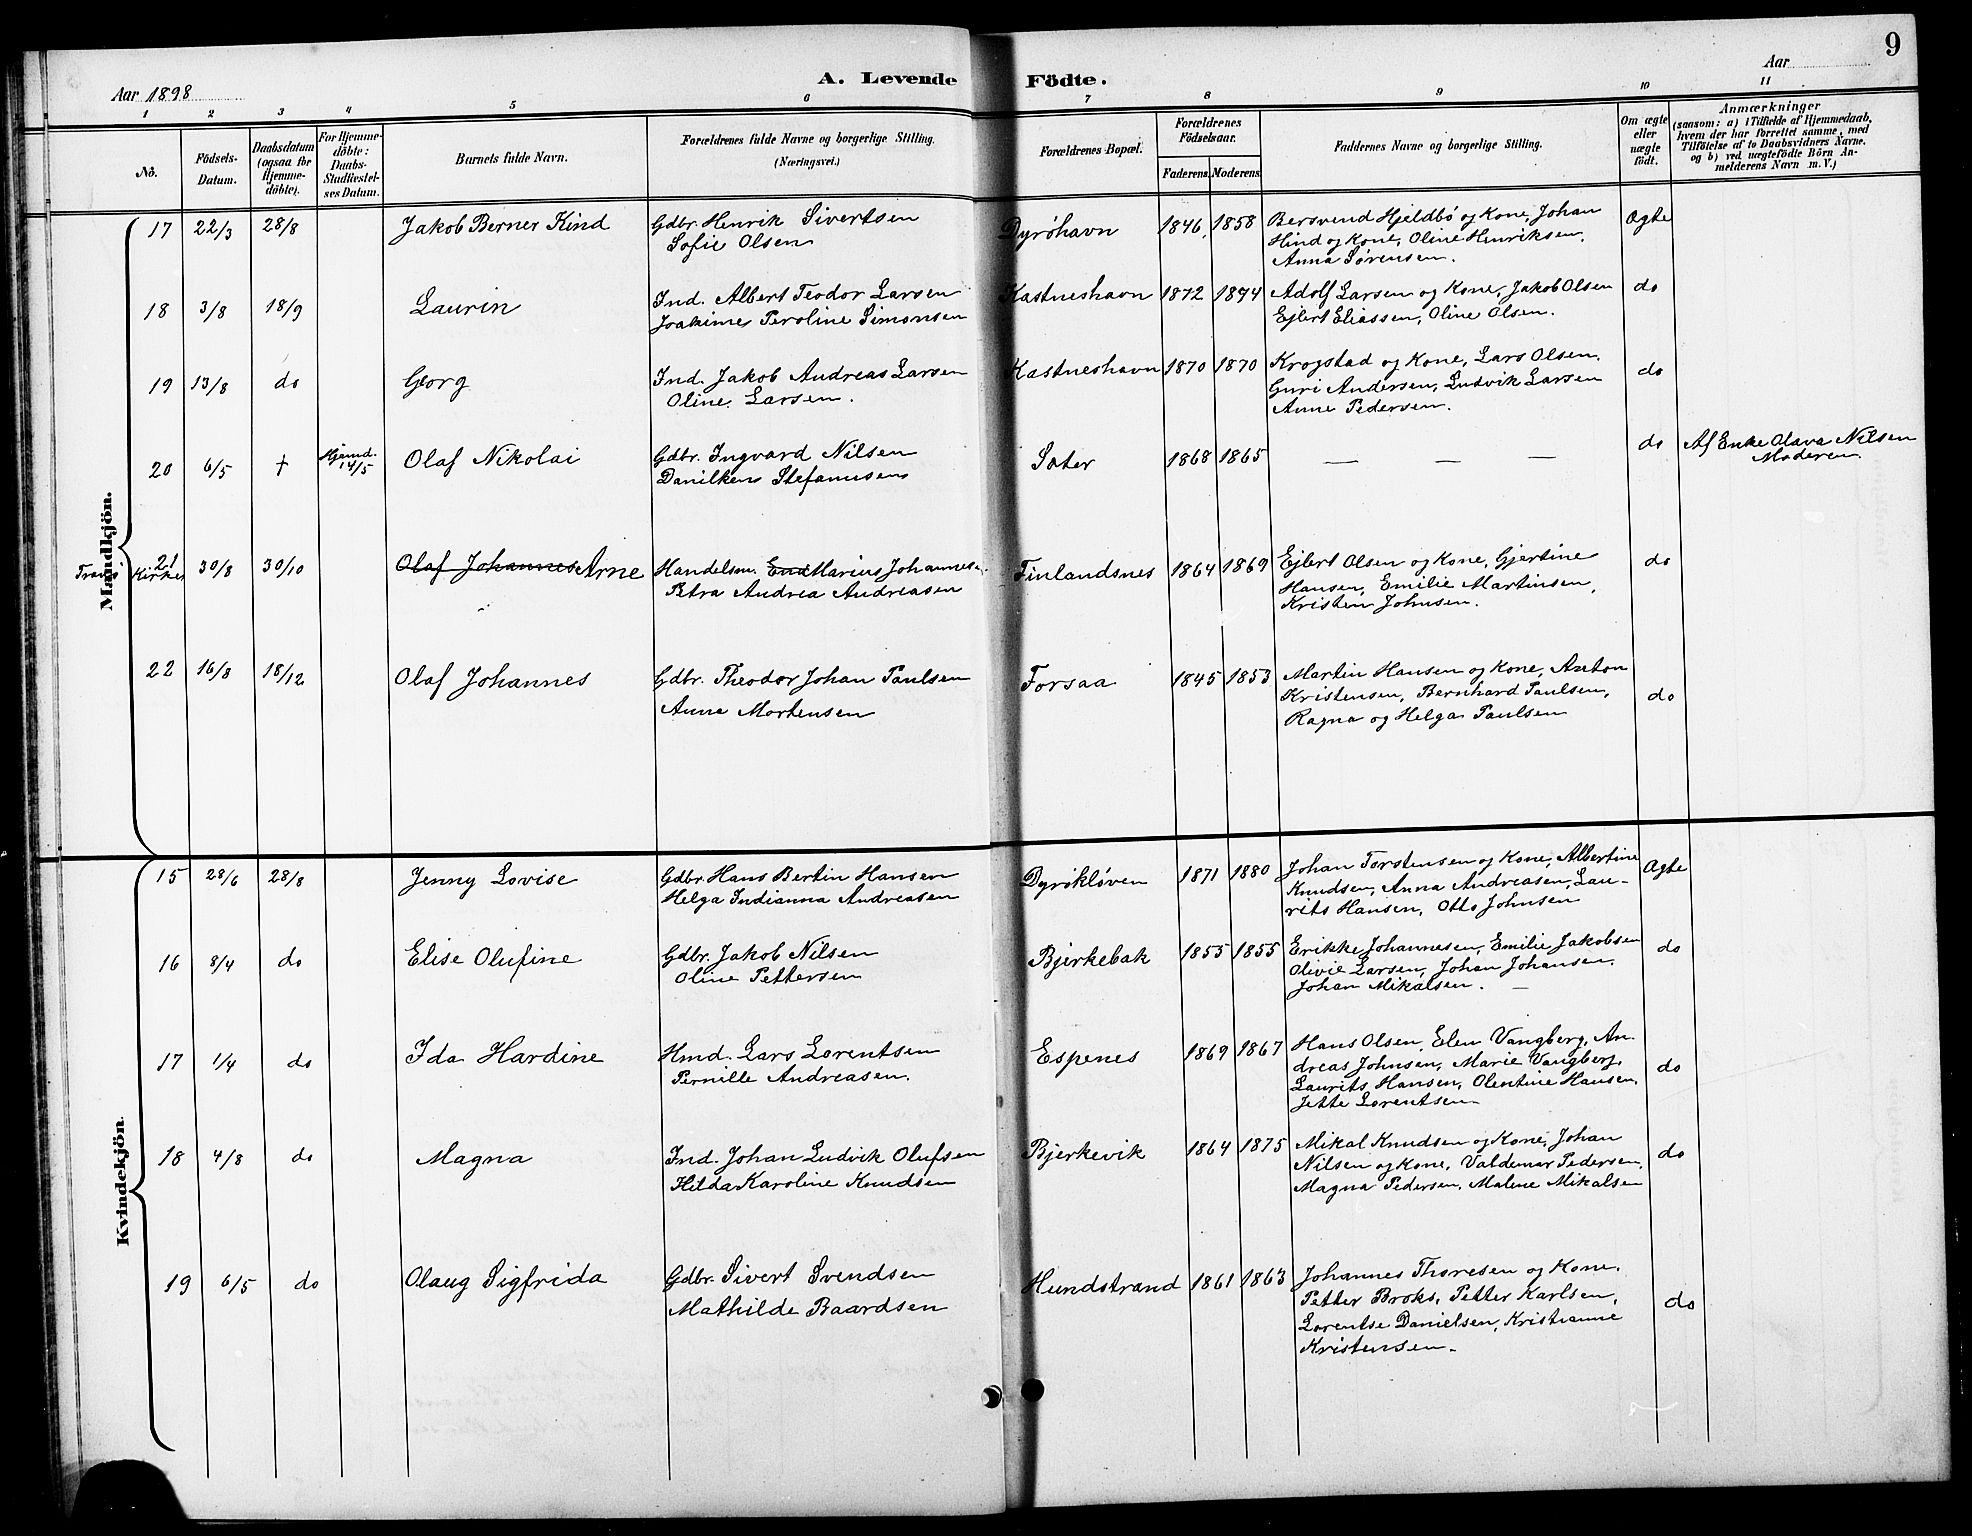 9
A. Levende Födte.
Aar 1898
Aar
1 2 3 4 5 6 7 8 9 10 11
No.
Födsels-Datum.
Daabsdatum (ogsaa for Hjemmedöbte).
For Hjemmedöbte: Daabs-Stadfæstelses Datum.
Barnets fulde Navn.
Forældrenes fulde Navne og borgerlige Stilling. (Næringsvei.)
Forældrenes Bopæl.
Forældrenes Födselsaar.
Faderens. Moderens.
Faddernes Navne og borgerlige Stilling.
Om ægte eller uægte født.
Anmærkninger
(saasom: a) i Tilfælde af Hjemmedaab,
hvem der har forrettet samme, med
Tilföielse af to Daabsvidners Navne,
og b) ved uægtefödte Börn Anmelderens Navn m. V.)
Mandkjön.
17 22/3 28/8 Jakob Berner Kind Gdbr. Henrik Sivertsen Dyröhavn 1846 1858 Bersvend Hjeldbö og Kone, Johan Ægte
Sofie Olsen Hind og Kone, Oline Henriksen,
Anna Sørensen.
18 3/8 18/9 Laurin Ind. Albert Teodor Larsen Kastneshavn 1872 1874 Adolf Larsen og Kone, Jakob Olsen do
Joakime Peroline Simonsen Ejlert Eliassen, Oline Olsen.
19 13/8 do Georg Ind. Jakob Andreas Larsen Kastneshavn 1870 1870 Krogstad og Kone, Lars Olsen, do
Oline Larsen. Guri Andersen, Ludvik Larsen
Anne Pedersen.
20 6/5 + Hjemd. 14/5 Olaf Nikolai Gdbr. Ingvard Nilsen Sæter 1868 1865 — — — do Af Enke Olava Nilsen
Danilkens Stefanusens Moderen.
21 Kirken 30/8 30/10 Olaf Johannes Arne Handelsm. Marius Johannesen Finlandsnes 1864 1869 Ejlert Olsen og Kone, Gjertine do
Petra Andrea Andreasen Hansen, Emilie Martinsen,
Kristen Johnsen.
22 16/8 18/12 Olaf Johannes Gdbr. Theodor Johan Paulsen Forsaa 1845 1853 Martin Hansen og Kone, Areton do
Anna Mortensen Kristensen, Bernhard Paulsen,
Ragna og Helga Paulsen
Kvindekjön.
15 28/6 28/8 Jenny Lovise Gdbr. Hans Bertin Hansen Dyrökløven 1871 1880 Johan Torstensen og Kone, Albertine Ægte
Helga Indianna Andreasen Knudsen, Anna Andreasen, Lau-
rits Hansen, Otto Johnsen
16 8/4 do Elise Olufine Gdbr. Jakob Nilsen Bjerkebak 1855 1855 Erikke Johannesen, Emilie Jakobsen do
Oline Pettersen Olivie Larsen, Johan Johansen,
Johan Mikalsen. —
17 1/4 do Ida Hardine Hmd. Lars Lorentsen Espenes 1869 1867 Hans Olsen, Elen Vangberg, An-
Pernille Andreasen. dreas Johnsen, Marie Vangberg, do
Laurits Hansen, Olentine Hansen,
Jette Lorentsen
18 4/8 do Magna Ind. Johan Ludvik Olufsen Bjerkevik 1864 1875 Mikal Knudsen og Kone, Johan do
Hilda Karoline Knudsen Nilsen og Kone, Valdemar Pedersen,
Magna Pedersen, Malene Mikalsen
19 6/5 do Olaug Sigfrida Gdbr. Sivert Svendsen Hundstrand 1861 1863 Johannes Thoresen og Kone,
Mathilde Baardsen Petter Broks, Petter Karlsen, do
Lorentse Danielsen, Kristianne
Kristensen.